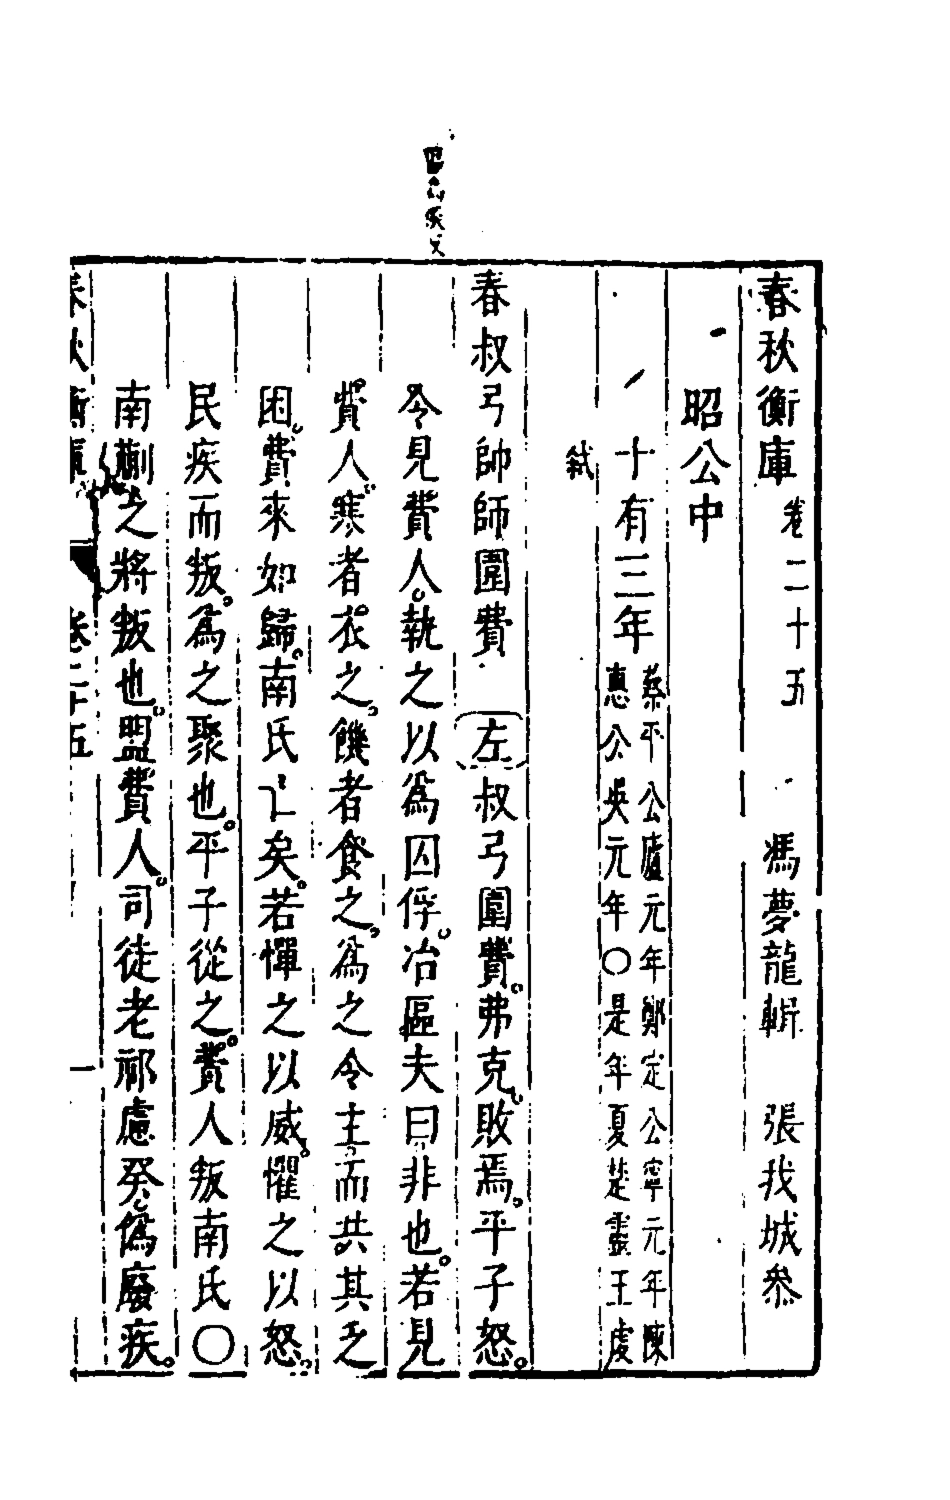 春秋衡庫 卷二十五 馮夢龍輯 張我城參
昭公中
十有三年 蔡平公廬元年鄭定公寧元年陳
惠公吳元年○是年夏楚靈王虔
弒
春叔弓帥師圍費 左 叔弓圍費弗克敗焉平子怒
令見費人執之以爲囚俘冶區夫曰非也若見
費人寒者衣之饑者食之爲之令主而共其乏
困費來如歸南氏亡矣若憚之以威懼之以怒
民疾而叛爲之聚也平子從之費人叛南氏○
南蒯之將叛也盟費人司徒老祁慮癸僞廢疾
春秋衡庫 卷二十五 一